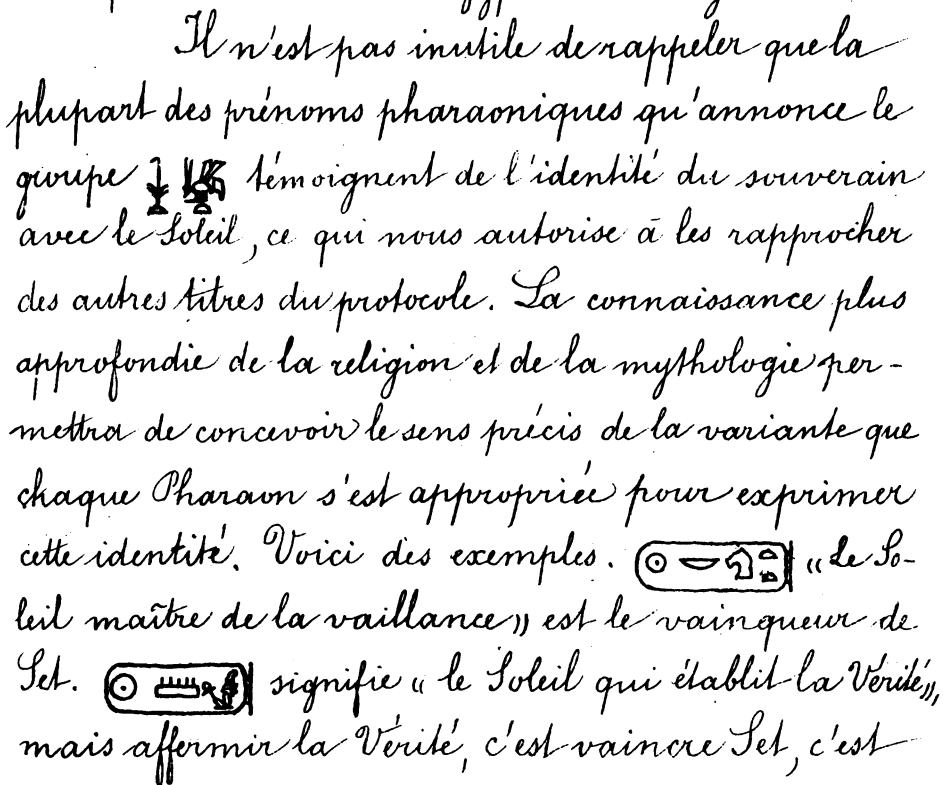 Il n'est pas inutile de rappeler que la
plupart des prénoms pharaoniques qu'annonce le
groupe témoignent de l'identité du souverain
avec le Soleil, ce qui nous autorise à les rapprocher
des autres titres du protocole. La connaissance plus
approfondie de la religion et de la mythologie per-
mettra de concevoir le sens précis de la variante que
chaque Pharaon s'est appropriée pour exprimer
cette identité. Voici des exemples. « Le So-
leil maître de la vaillance » est le vainqueur de
Set. signifie « le Soleil qui établit la Vérité »,
mais affermir la Vérité, c'est vaincre Set, c'est